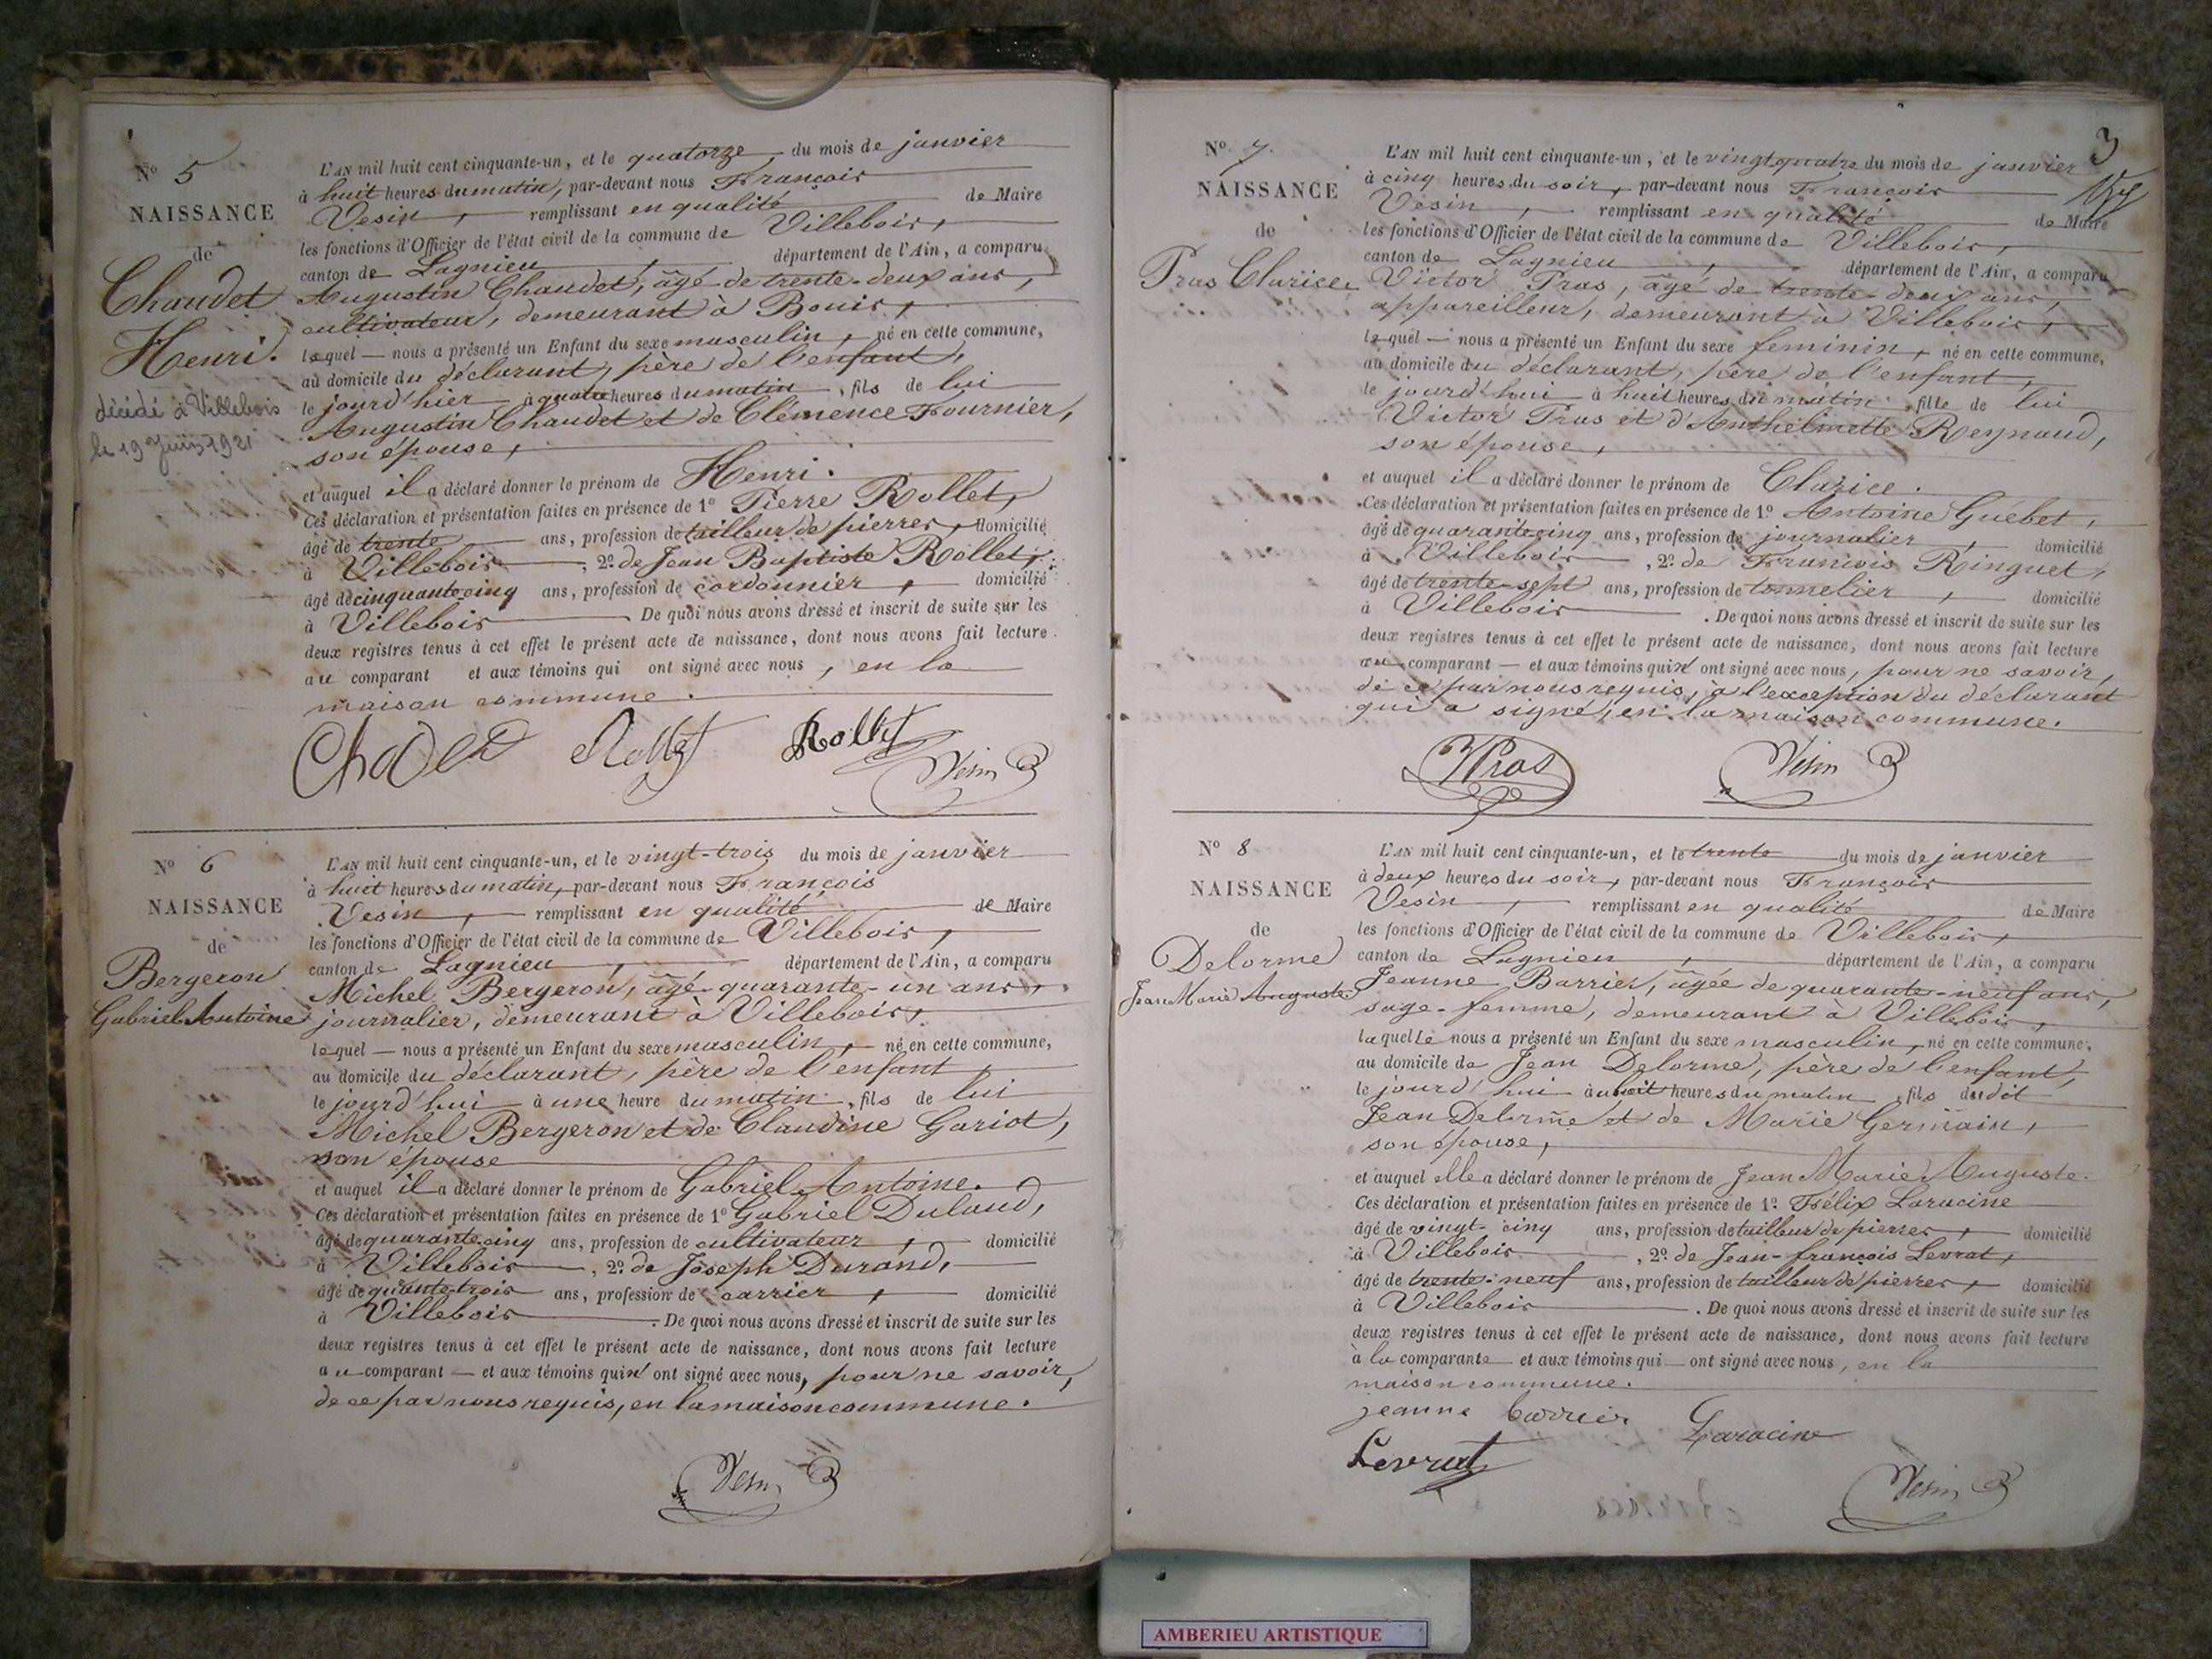 Nº 5
NAISSANCE
de
Chaudet
Henri.
décédé à Villebois
le 19 Juin 1921
L'AN mil huit cent cinquante-un, et le quatorze, du mois de janvier
à huit heures du matin, par-devant nous François
Vesin, remplissant en qualité de Maire
les fonctions d'Officier de l'état civil de la commune de Villebois,
canton de Lagnieu, département de l'Ain, a comparu
Augustin Chaudet, âgé de trente-deux ans,
cultivateur, demeurant à Bouis,
lequel — nous a présenté un Enfant du sexe masculin, né en cette commune,
au domicile du déclarant, père de l'enfant,
le jourd'hier à quatre heures du matin, fils de lui
Augustin Chaudet et de Clémence Fournier,
son épouse,
et auquel il a déclaré donner le prénom de Henri.
Ces déclaration et présentation faites en présence de 1º Pierre Rollet,
âgé de trente ans, profession de tailleur de pierres, domicilié
à Villebois, 2º de Jean Baptiste Rollet,
âgé de cinquante cinq ans, profession de cordonnier, domicilié
à Villebois De quoi nous avons dressé et inscrit de suite sur les
deux registres tenus à cet effet le présent acte de naissance, dont nous avons fait lecture
au comparant et aux témoins qui ont signé avec nous, en la
maison commune.
Rollet Rollet
Vesin
Nº 6
NAISSANCE
de
Bergeron
Gabriel Antoine
L'AN mil huit cent cinquante-un, et le vingt-trois du mois de janvier
à huit heures du matin, par-devant nous François
Vesin, remplissant en qualité de Maire
les fonctions d'Officier de l'état civil de la commune de Villebois,
canton de Lagnieu, département de l'Ain, a comparu
Michel Bergeron, âgé quarante-un ans,
journalier, demeurant à Villebois,
lequel — nous a présenté un Enfant du sexe masculin, né en cette commune,
au domicile du déclarant, père de l'enfant,
le jourd'hui à une heure du matin, fils de lui
Michel Bergeron et de Claudine Gariot,
son épouse
et auquel il a déclaré donner le prénom de Gabriel Antoine.
Ces déclaration et présentation faites en présence de 1º Gabriel Dulaud,
âgé de quarante cinq ans, profession de cultivateur, domicilié
à Villebois, 2º de Joseph Durand,
âgé de ans, profession de carrier, domicilié
à Villebois. De quoi nous avons dressé et inscrit de suite sur les
deux registres tenus à cet effet le présent acte de naissance, dont nous avons fait lecture
au comparant — et aux témoins qui n' ont signé avec nous, pour ne savoir,
de ce par nous requis, en la maison commune.
Vesin
3
Nº 7.
NAISSANCE
de
Pras Clarice
L'AN mil huit cent cinquante-un, et le vingt quatre du mois de janvier
à cinq heures du soir, par-devant nous François
Vesin, remplissant en qualité de Maire
les fonctions d'Officier de l'état civil de la commune de Villebois,
canton de Lagnieu, département de l'Ain, a comparu
Victor Pras, âgé de trente-deux ans,
appareilleur, demeurant à Villebois,
lequel — nous a présenté un Enfant du sexe feminin, né en cette commune,
au domicile du déclarant, père de l'enfant,
le jourd'hui à huit heures du matin, fille de lui
Victor Pras et d'Anthelmette Reynaud,
son épouse,
et auquel il a déclaré donner le prénom de Clarice.
Ces déclaration et présentation faites en présence de 1º Antoine Guébet,
âgé de quarante cinq ans, profession de journalier, domicilié
à Villebois, 2º de François Ringuet,
âgé de trente-sept ans, profession de tonnelier, domicilié
à Villebois. De quoi nous avons dressé et inscrit de suite sur les
deux registres tenus à cet effet le présent acte de naissance, dont nous avons fait lecture
au comparant — et aux témoins qui n' ont signé avec nous, pour ne savoir,
de ce par nous requis, à l'exception du déclarant
qui a signé, en la maison commune.
VPras Vesin
Nº 8
NAISSANCE
de
Delorme
Jean Marie Auguste
L'AN mil huit cent cinquante-un, et le trente du mois de janvier
à deux heures du soir, par-devant nous François
Vesin, remplissant en qualité de Maire
les fonctions d'Officier de l'état civil de la commune de Villebois,
canton de Lagnieu, département de l'Ain, a comparu
Jeanne Barrier, âgée de quarante-neuf ans,
sage-femme, demeurant à Villebois,
laquelle nous a présenté un Enfant du sexe masculin, né en cette commune,
au domicile de Jean Delorme, père de l'enfant,
le jourd'hui à huit heures du matin, fils dudit
Jean Delorme et de Marie Germain,
son épouse,
et auquel elle a déclaré donner le prénom de Jean Marie Auguste.
Ces déclaration et présentation faites en présence de 1º Félix Laracine
âgé de vingt-cinq ans, profession de tailleur de pierres, domicilié
à Villebois, 2º de Jean-françois Levrat,
âgé de trente-neuf ans, profession de tailleur de pierres, domicilié
à Villebois. De quoi nous avons dressé et inscrit de suite sur les
deux registres tenus à cet effet le présent acte de naissance, dont nous avons fait lecture
à la comparante et aux témoins qui — ont signé avec nous, en la
maison commune.
jeanne barrier Laracine
Levrat
Vesin
AMBERIEU ARTISTIQUE